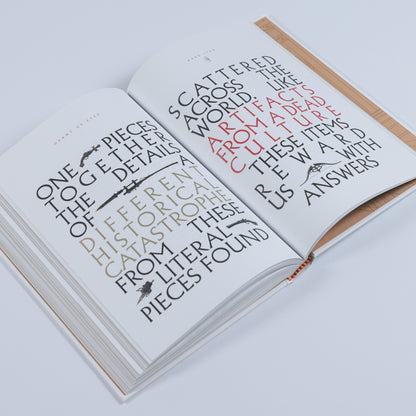 ONE PIECES
TOGETHER
THE DETAILS
OF A
DIFFERENT
HISTORICAL
CATASTROPHE
FROM THESE
LITERAL
PIECES FOUND
SCATTERED
ACROSS THE
WORLD. LIKE
ARTIFACTS
FROM A DEAD
CULTURE
THESE ITEMS
REWARD
US WITH
ANSWERS